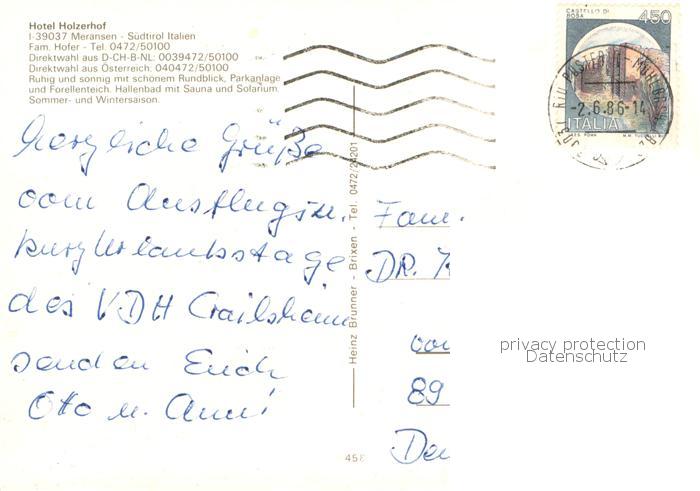 Hotel Holzerhof
I-39037 Meransen - Südtirol Italien
Fam. Hofer - Tel. 0472/50100
Direktwahl aus D-CH-B-NL: 0039472/50100
Direktwahl aus Österreich: 040472/50100
Ruhig und sonnig mit schönem Rundblick, Parkanlage
und Forellenteich. Hallenbad mit Sauna und Solarium.
Sommer- und Wintersaison.
CASTELLO DI
ROSA
450
-2.6.86-14
ITALIA
herzliche Grüße
vom Ausflug u.
kurz Urlaubstage
des VDH Crailsheim
senden Euch
Otto u. Anni
Heinz Brunner - Brixen - Tel. 0472/24201
Fam.
DR. K
von
89
De
458
privacy protection
Datenschutz